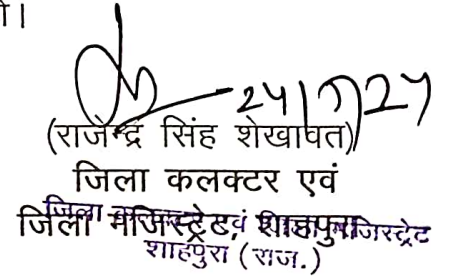 ।
24/7/24
(राजेन्द्र सिंह शेखावत)
जिला कलक्टर एवं
जिला मजिस्ट्रेट, शाहपुरा
जिला एवं जिला मजिस्ट्रेट
शाहपुरा (राज.)